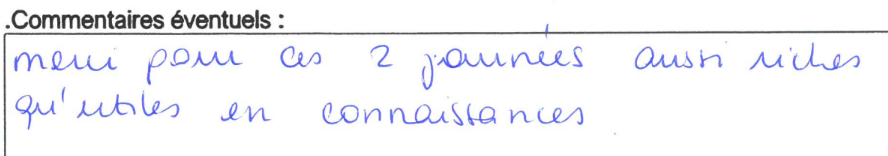 .Commentaires éventuels :
merci pour ces 2 journées aussi riches
qu'utiles en connaissances